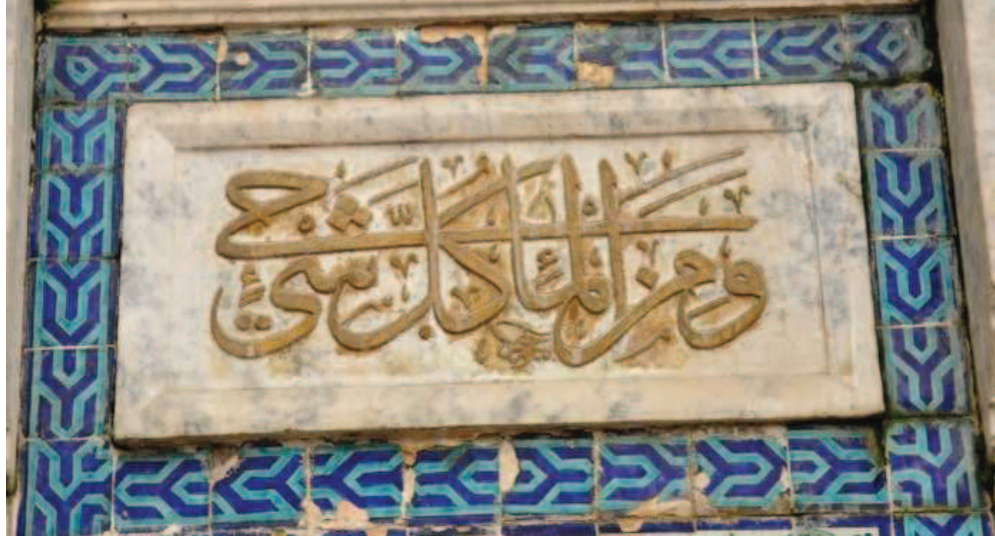 ومن الماء كل شئ حي